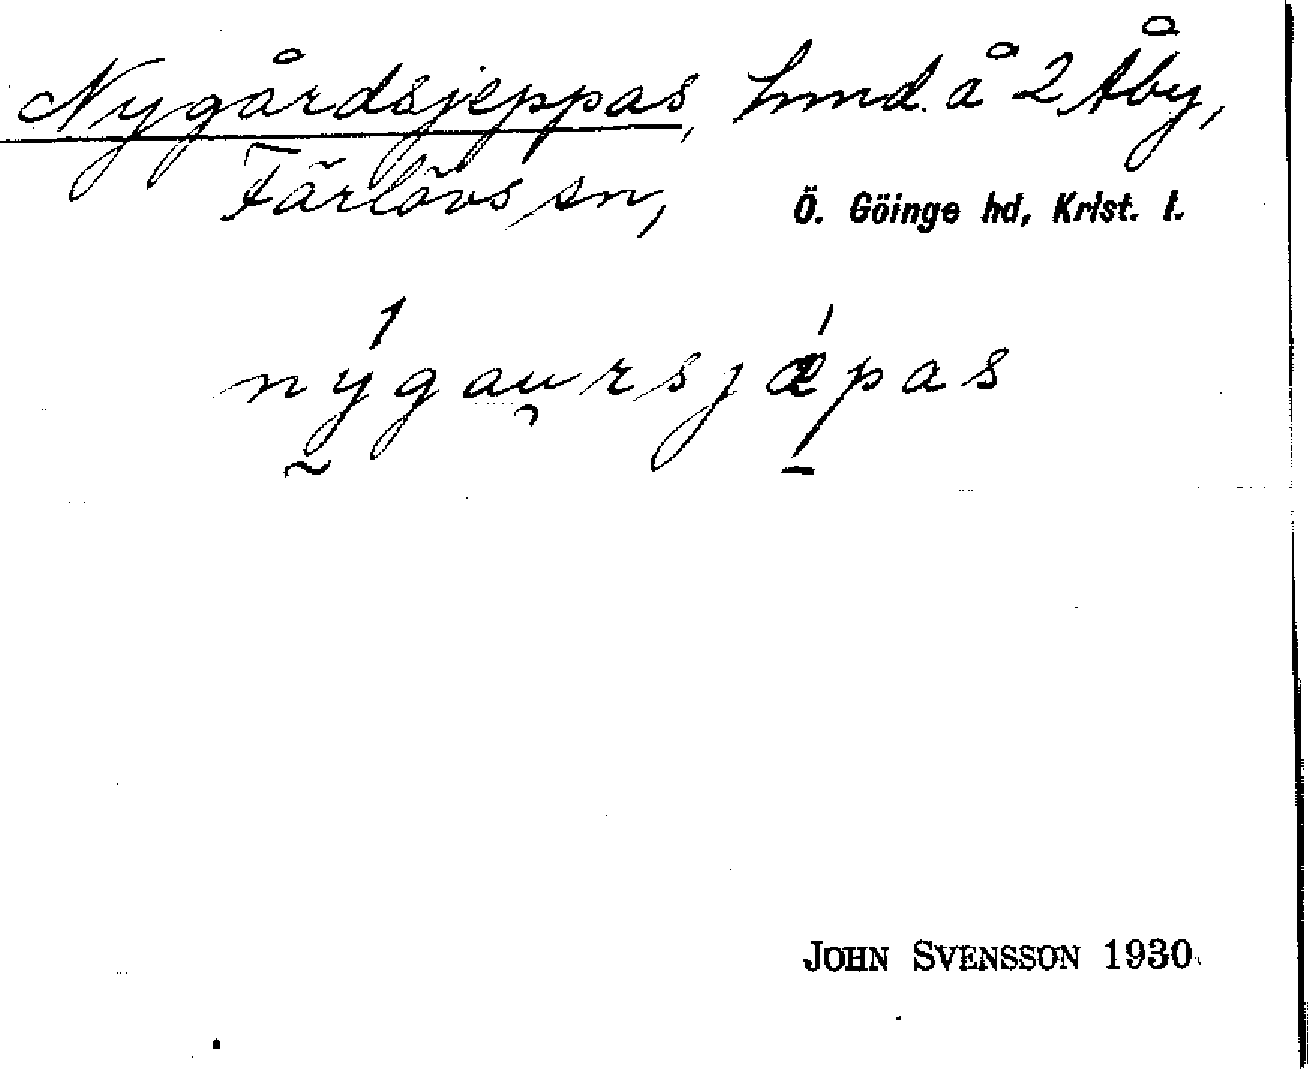 Nygårdsjeppas, hmd. å 2 Åby,
Färlövs sn, Ö. Göinge hd, Krist. l.
nýgau̯rsjǽpas
JOHN SVENSSON 1930